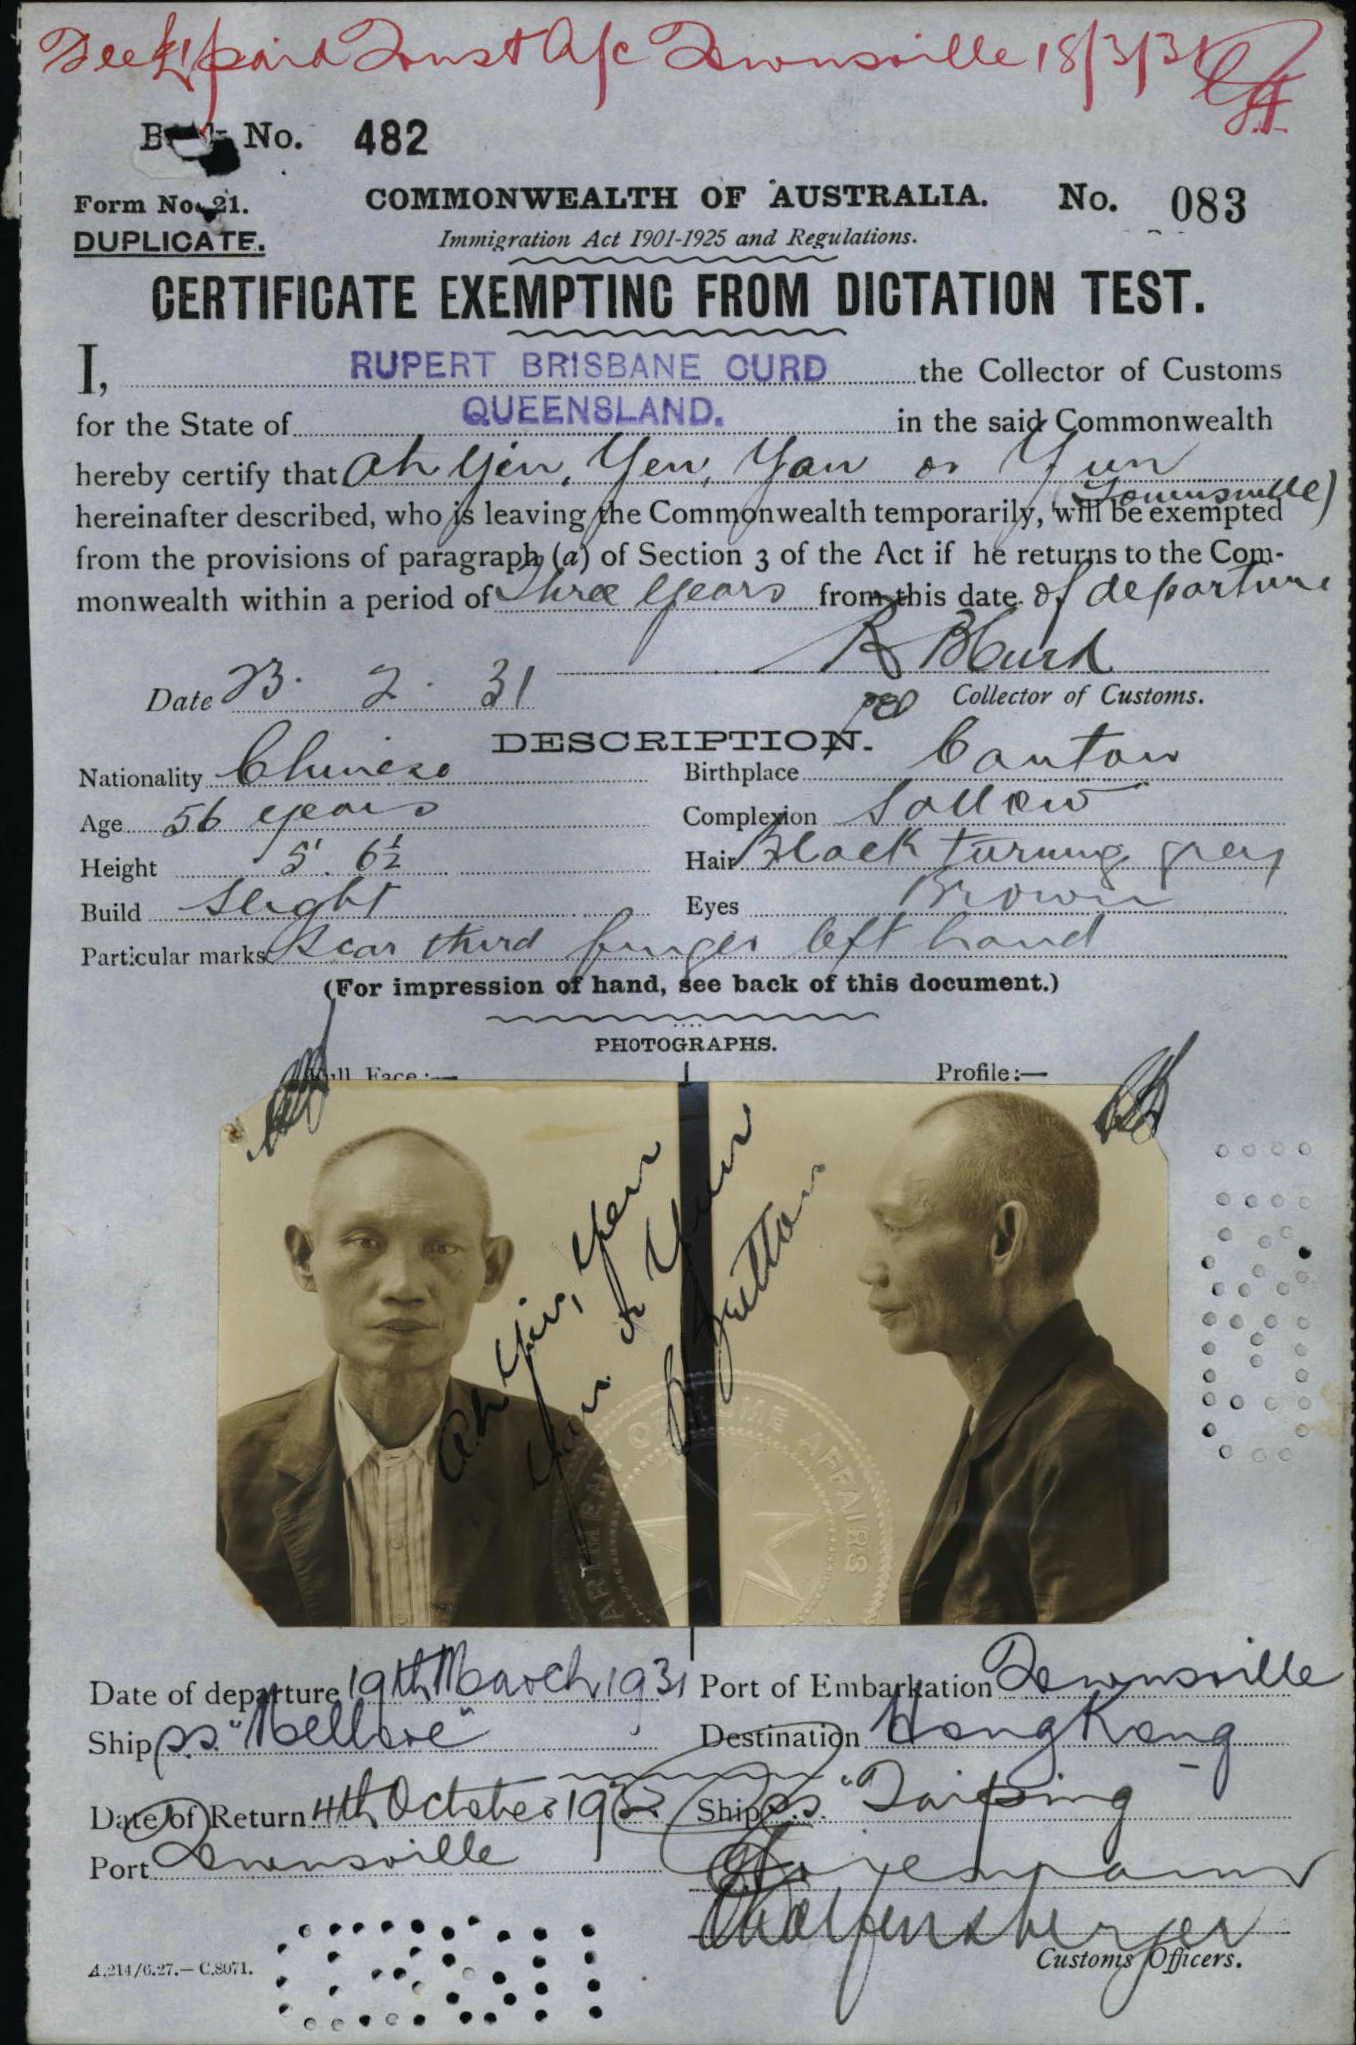 Fee £1 paid Trust A/c Townsville 18/3/31
Book No. 482
Form No. 21.
COMMONWEALTH OF AUSTRALIA.
No. 083
DUPLICATE.
Immigration Act 1901-1925 and Regulations.
CERTIFICATE EXEMPTING FROM DICTATION TEST.
I, RUPERT BRISBANE CURD the Collector of Customs
for the State of QUEENSLAND. in the said Commonwealth
hereby certify that Ah Yin, Yen, Yan or Yun
(Townsville)
hereinafter described, who is leaving the Commonwealth temporarily, will be exempted
from the provisions of paragraph (a) of Section 3 of the Act if he returns to the Com-
monwealth within a period of Three years from this date of departure
R B Curd
Date 23. 2. 31
Collector of Customs.
DESCRIPTION.
Nationality Chinese
Birthplace Canton
Age 56 years
Complexion Sallow
Height 5' 6½
Hair Black turning grey
Build Slight
Eyes Brown
Particular marks Scar third finger left hand
(For impression of hand, see back of this document.)
PHOTOGRAPHS.
Full Face:—
Profile:—
Ah Yin, Yen
Yan or Yun
DEPARTMENT OF HOME AFFAIRS
Date of departure 19th March 1931
Port of Embarkation Townsville
Ship s.s. "Mellore"
Destination Hong Kong
Date of Return 4th October 1932
Ship s.s. "Taiping"
Port Townsville
Customs Officers.
A.214/6.27.—C.8071.